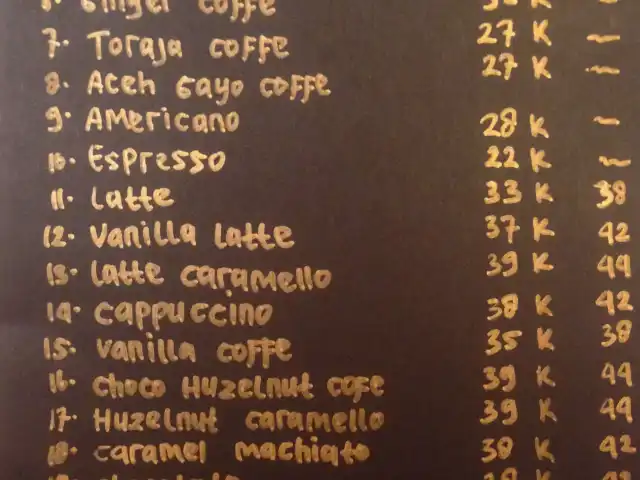 6. Ginger coffe 36 K ~
7. Toraja coffe 27 K ~
8. Aceh Gayo coffe 27 K ~
9. Americano 28 K ~
10. Espresso 22 K ~
11. Latte 33 K 38
12. Vanilla Latte 37 K 42
13. Latte caramello 39 K 44
14. cappuccino 38 K 42
15. vanilla coffe 35 K 38
16. choco Huzelnut cofe 39 K 44
17. Huzelnut caramello 39 K 44
18. caramel machiato 38 K 42